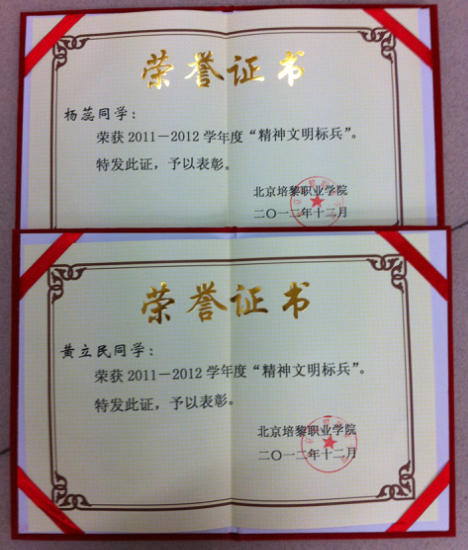 荣誉证书
杨蕊同学：
荣获2011－2012学年度“精神文明标兵”。
特发此证，予以表彰。
北京培黎职业学院
二〇一二年十二月
荣誉证书
黄立民同学：
荣获2011－2012学年度“精神文明标兵”。
特发此证，予以表彰。
北京培黎职业学院
二〇一二年十二月